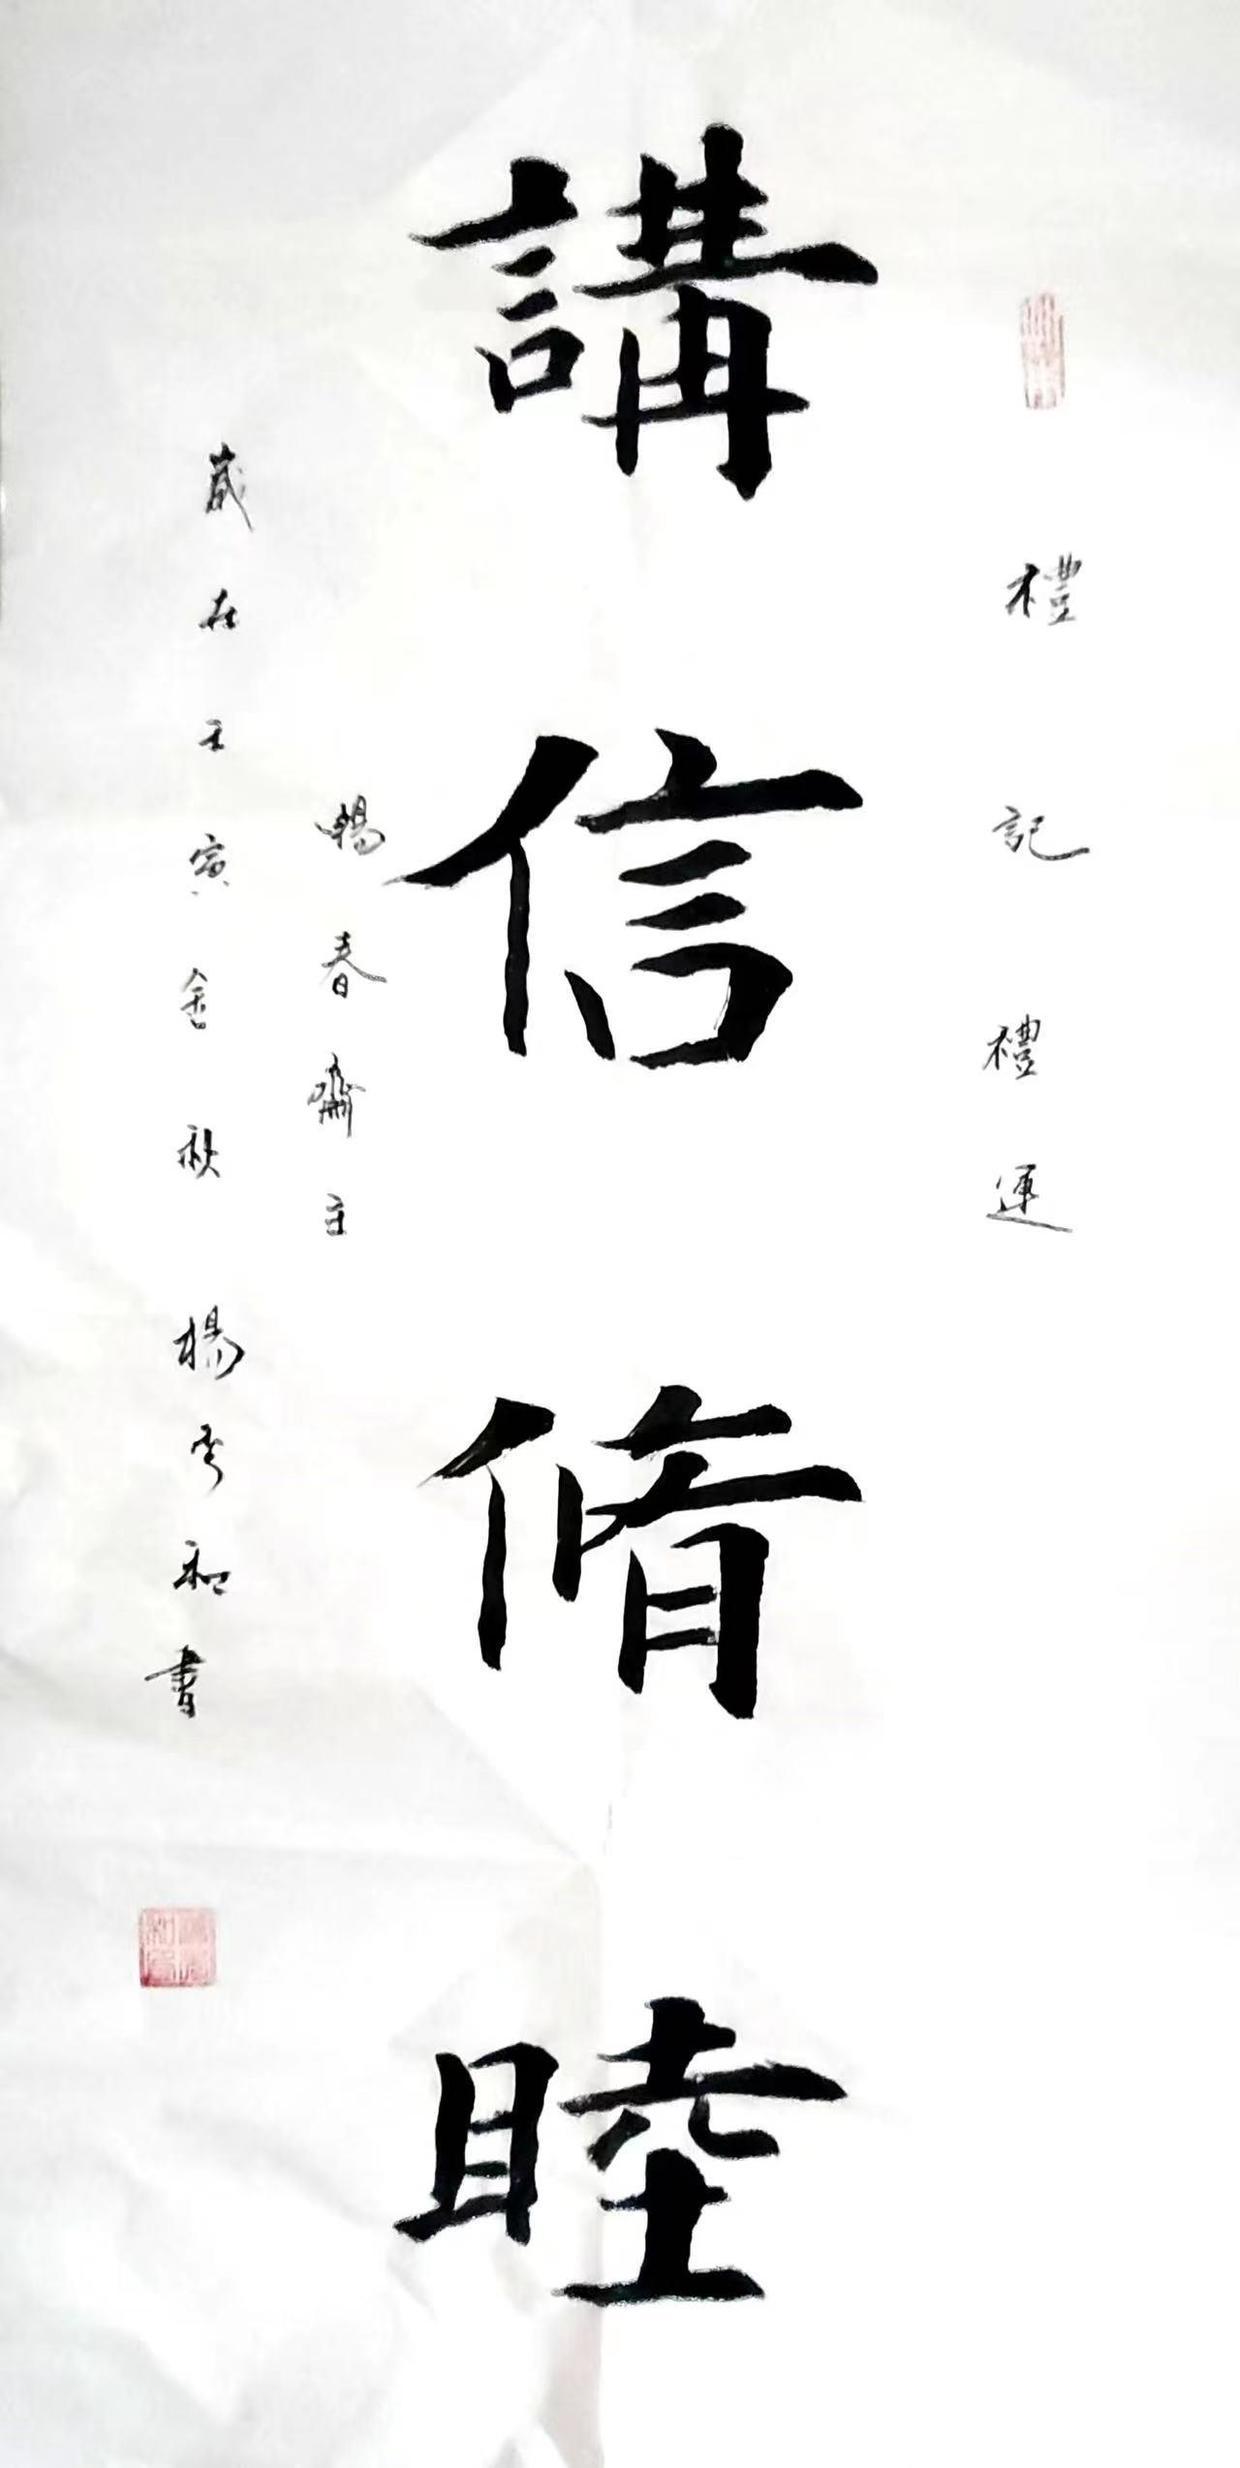 禮記禮運
講信脩睦
暢春齋主
歲在壬寅金秋楊秀和書